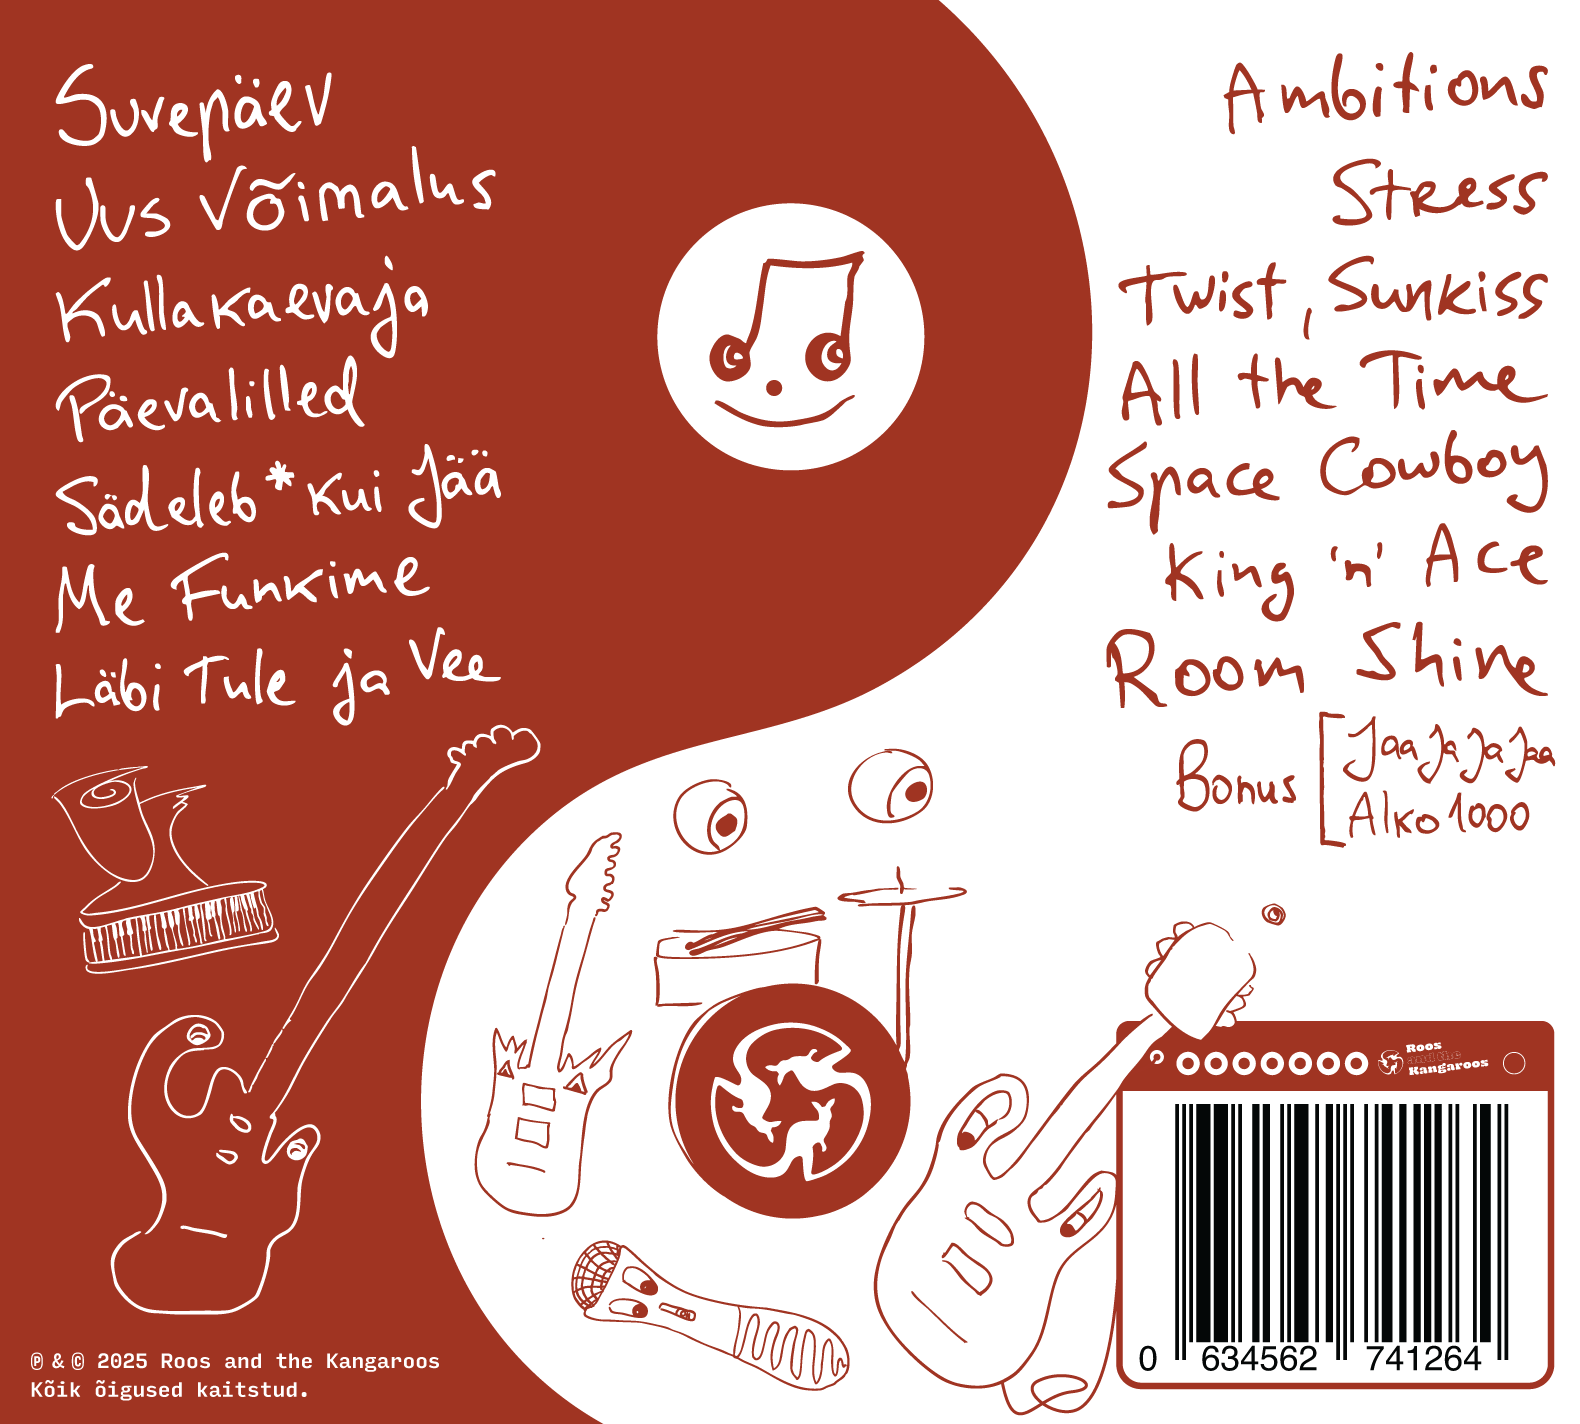 Suvepäev
Uus Võimalus
Kullakaevaja
Päevalilled
Sädeleb*kui Jää
Me Funkime
Läbi Tule ja Vee
Ambitions
Stress
Twist, Sunkiss
All the Time
Space Cowboy
King 'n' Ace
Room Shine
Bonus
Jaa Ja Ja Jaa
Alko 1000
Roos
and the
Kangaroos
0 634562 741264
℗ & © 2025 Roos and the Kangaroos
Kõik õigused kaitstud.